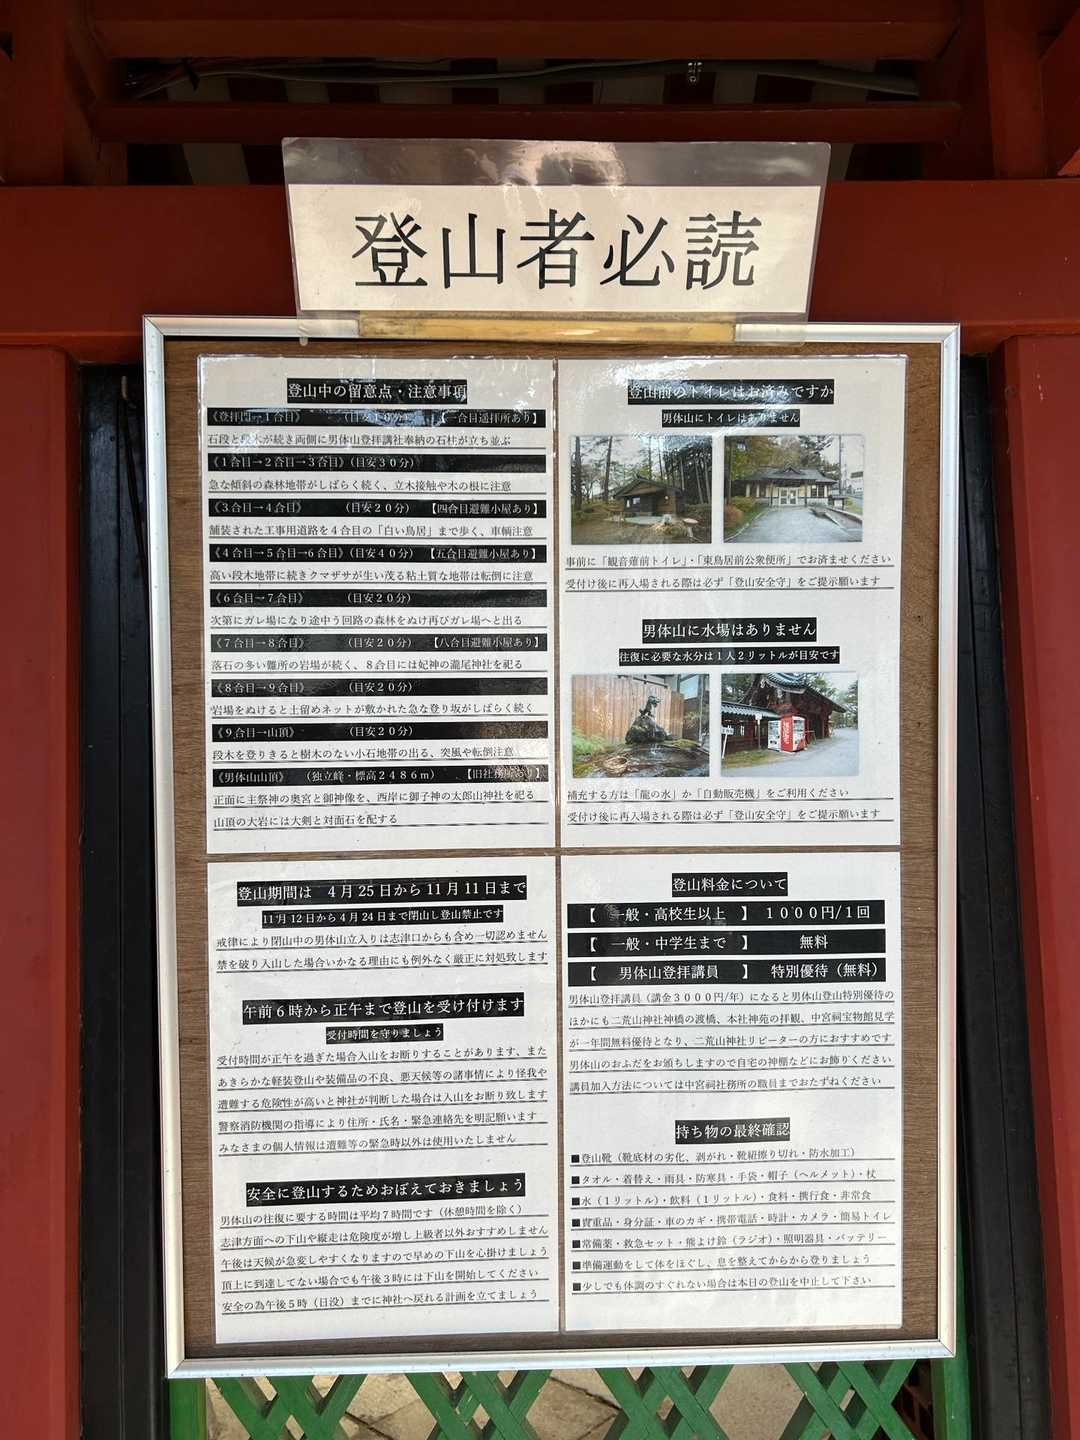 登山者必読
登山中の留意点・注意事項
《登拝門→1合目》 (目安10分) 【一合目遥拝所あり】
石段と段木が続き両側に男体山登拝講社奉納の石柱が立ち並ぶ
《1合目→2合目→3合目》(目安30分)
急な傾斜の森林地帯がしばらく続く、立木接触や木の根に注意
《3合目→4合目》 (目安20分) 【四合目避難小屋あり】
舗装された工事用道路を4合目の「白い鳥居」まで歩く、車輌注意
《4合目→5合目→6合目》(目安40分) 【五合目避難小屋あり】
高い段木地帯に続きクマザサが生い茂る粘土質な地帯は転倒に注意
《6合目→7合目》 (目安20分)
次第にガレ場になり途中う回路の森林をぬけ再びガレ場へと出る
《7合目→8合目》 (目安20分) 【八合目避難小屋あり】
落石の多い難所の岩場が続く、8合目には妃神の瀧尾神社を祀る
《8合目→9合目》 (目安20分)
岩場をぬけると土留めネットが敷かれた急な登り坂がしばらく続く
《9合目→山頂》 (目安20分)
段木を登りきると樹木のない小石地帯の出る、突風や転倒注意
《男体山山頂》 (独立峰・標高2486m) 【旧社務所あり】
正面に主祭神の奥宮と御神像を、西岸に御子神の太郎山神社を祀る
山頂の大岩には大剣と対面石を配する
登山前のトイレはお済みですか
男体山にトイレはありません
事前に「観音薙前トイレ」・「東鳥居前公衆便所」でお済ませください
受付け後に再入場される際は必ず「登山安全守」をご提示願います
男体山に水場はありません
往復に必要な水分は1人2リットルが目安です
補充する方は「龍の水」か「自動販売機」をご利用ください
受付け後に再入場される際は必ず「登山安全守」をご提示願います
登山期間は 4月25日から11月11日まで
11月12日から4月24日まで閉山し登山禁止です
戒律により閉山中の男体山立入りは志津口からも含め一切認めません
禁を破り入山した場合いかなる理由にも例外なく厳正に対処致します
午前6時から正午まで登山を受け付けます
受付時間を守りましょう
受付時間が正午を過ぎた場合入山をお断りすることがあります、また
あきらかな軽装登山や装備品の不良、悪天候等の諸事情により怪我や
遭難する危険性が高いと神社が判断した場合は入山をお断り致します
警察消防機関の指導により住所・氏名・緊急連絡先を明記願います
みなさまの個人情報は遭難等の緊急時以外は使用いたしません
安全に登山するためおぼえておきましょう
男体山の往復に要する時間は平均7時間です(休憩時間を除く)
志津方面への下山や縦走は危険度が増し上級者以外おすすめしません
午後は天候が急変しやすくなりますので早めの下山を心掛けましょう
頂上に到達してない場合でも午後3時には下山を開始してください
安全の為午後5時(日没)までに神社へ戻れる計画を立てましょう
登山料金について
【 一般・高校生以上 】 1000円/1回
【 一般・中学生まで 】 無料
【 男体山登拝講員 】 特別優待(無料)
男体山登拝講員(講金3000円/年)になると男体山登山特別優待の
ほかにも二荒山神社神橋の渡橋、本社神苑の拝観、中宮祠宝物館見学
が一年間無料優待となり、二荒山神社リピーターの方におすすめです
男体山のおふだをお頒ちしますので自宅の神棚などにお飾りください
講員加入方法については中宮祠社務所の職員までおたずねください
持ち物の最終確認
■登山靴(靴底材の劣化、剥がれ・靴紐擦り切れ・防水加工)
■タオル・着替え・雨具・防寒具・手袋・帽子(ヘルメット)・杖
■水(1リットル)・飲料(1リットル)・食料・携行食・非常食
■貴重品・身分証・車のカギ・携帯電話・時計・カメラ・簡易トイレ
■常備薬・救急セット・熊よけ鈴(ラジオ)・照明器具・バッテリー
■準備運動をして体をほぐし、息を整えてからから登りましょう
■少しでも体調のすぐれない場合は本日の登山を中止して下さい